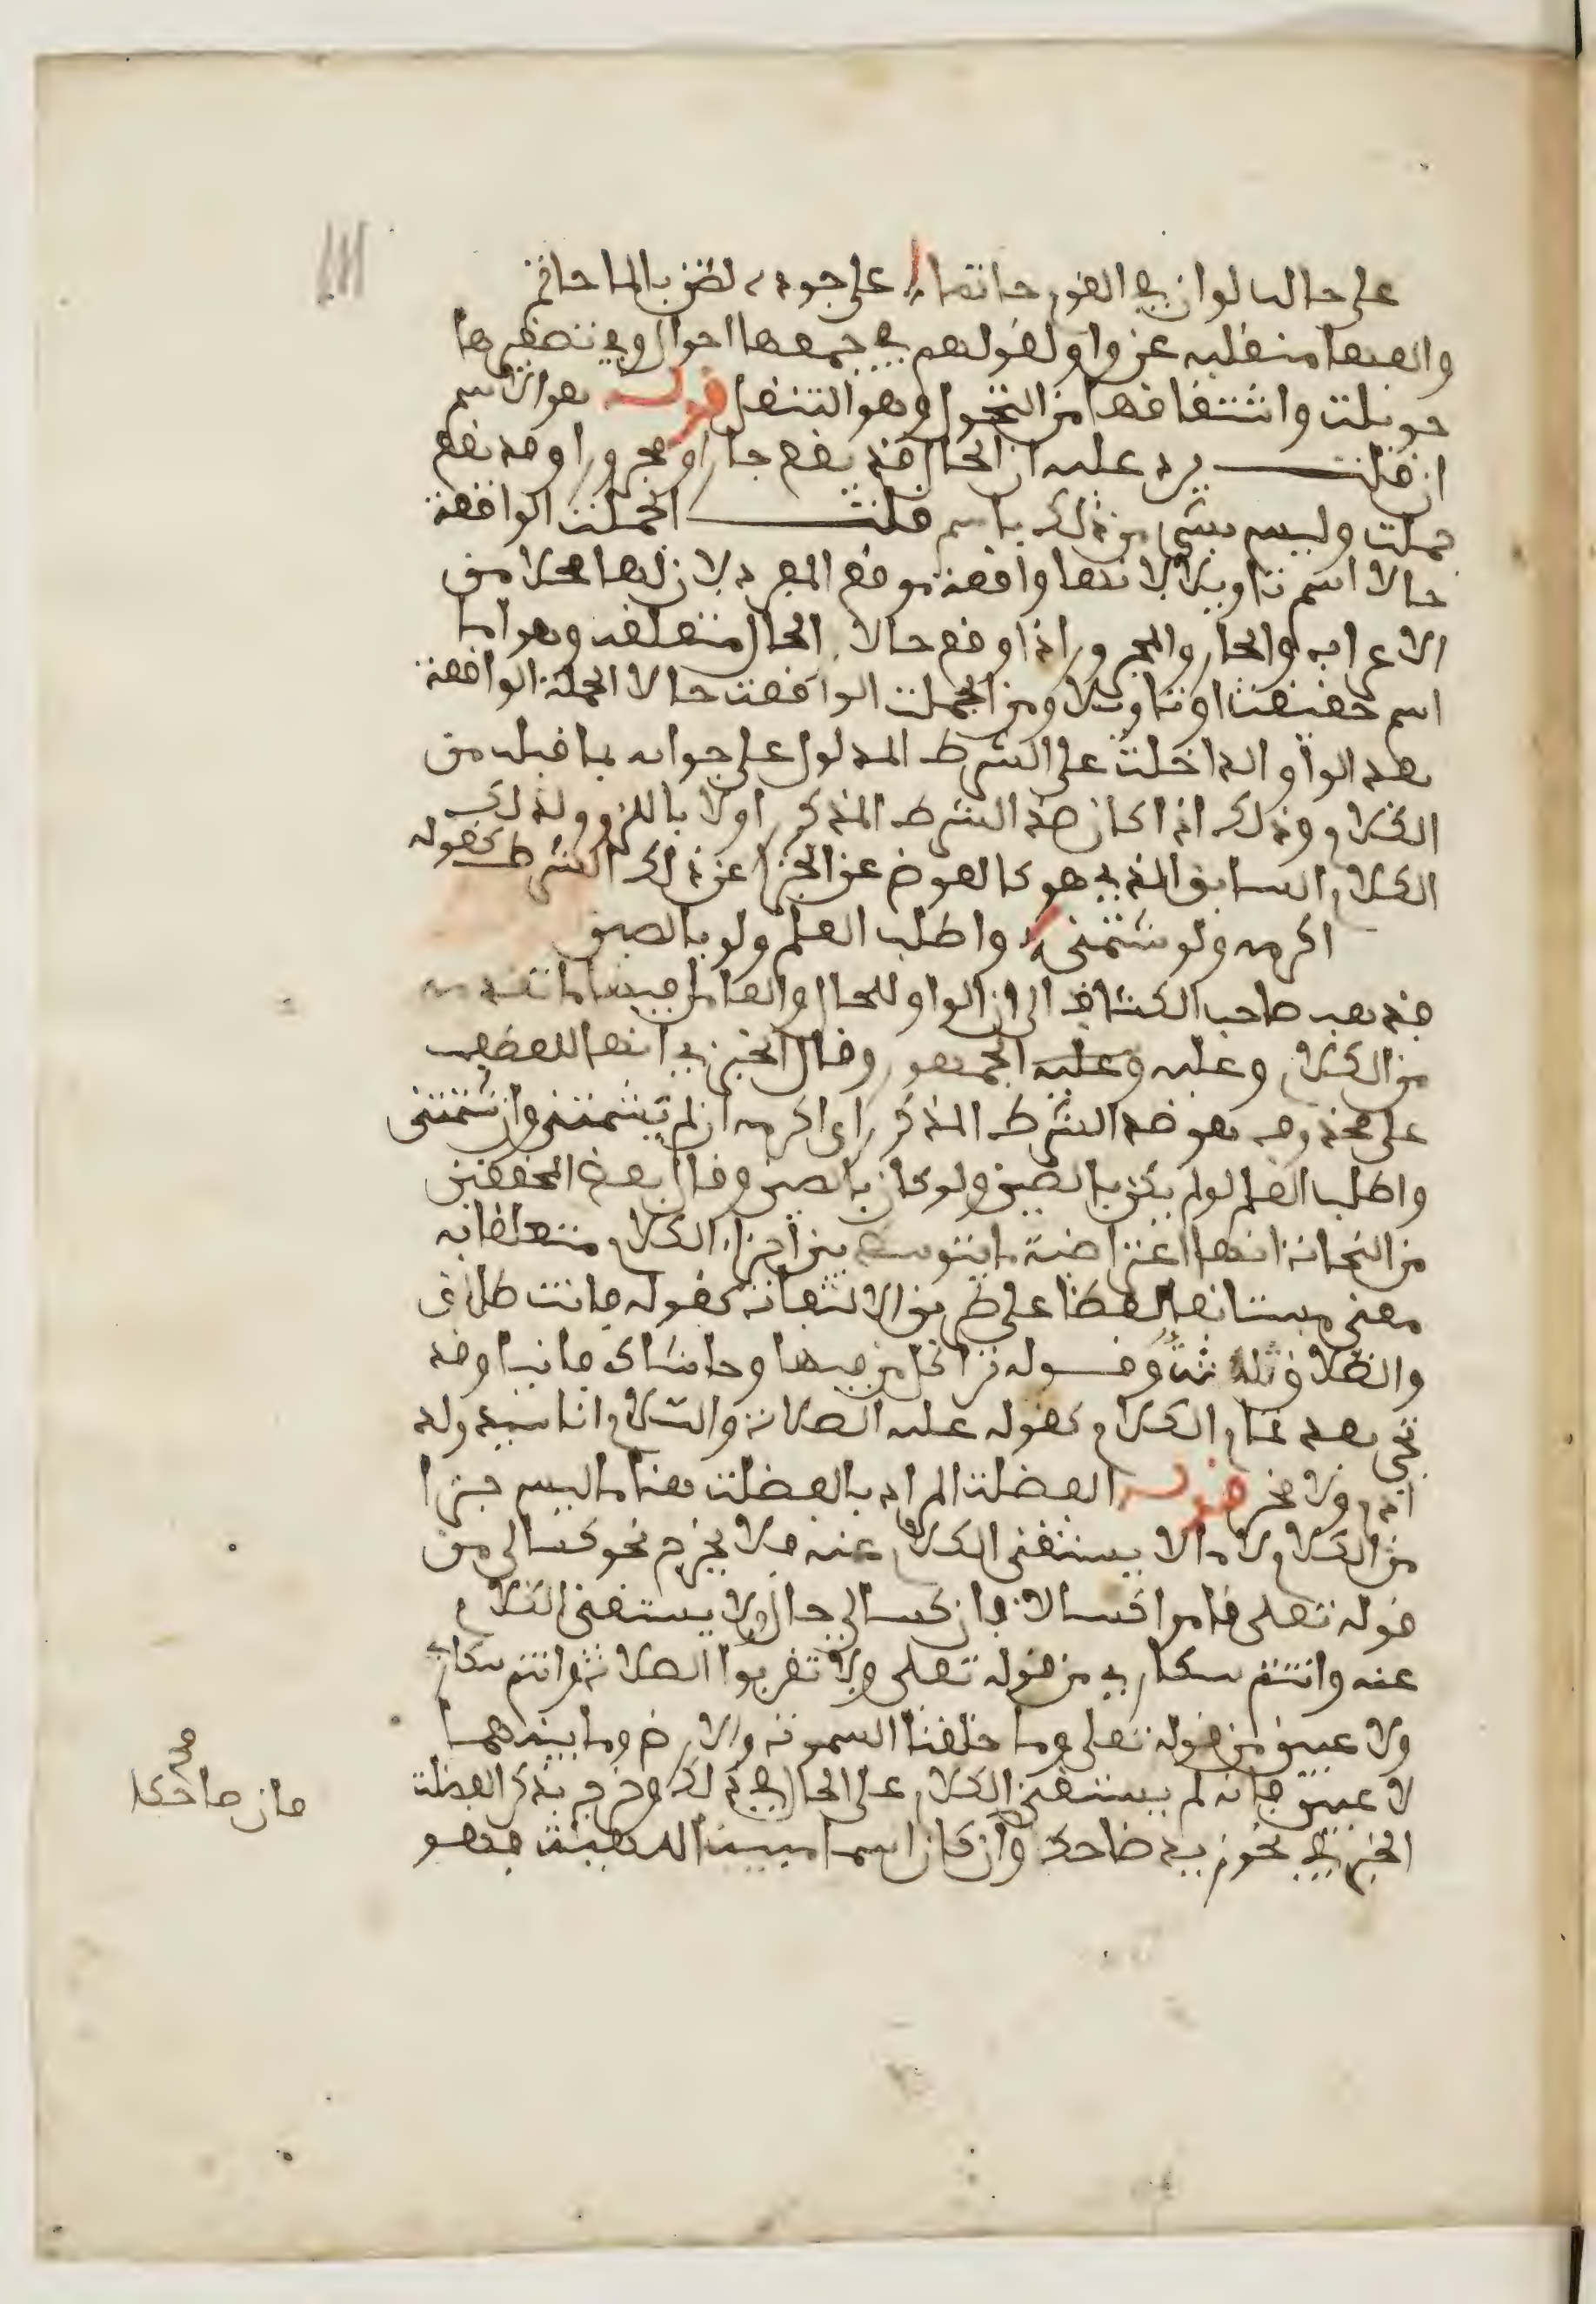 على حالة لو ان في القوم حاتما على جوده لضن بالما حاتم
والفها منقلبة عن واو لقولهم في جمعها احوال وفي تصغيرها
حويلت واشتقاقها من التحول وهو التنقل قوله هو الاسم
ان قلت يرد عليه ان الحال قد يقع جارا ومجرورا وقد يقع
جملت وليس بشيء من ذلك باسم قلت الجملت الواقعة
حالا اسم تاويلا لانها واقعة موقع المفرد لان لها محلا من
الاعراب والجار والمجرور اذا وقع حالا الحال متعلقه وهو اما
اسم حقيقت او تاويلا ومن الجملت الواقعت حالا الجملة الواقعة
بعد الواو الداخلت على الشرط المدلول على جوابه بما قبله من
الكلام وذلك اذا كان ضد الشرط المذكور اولا باللزوم لذلك
الكلام السابق الذي هو كالعوض عن الجزا عن ذلك الشرط كقوله
اكرمه ولو شتمني واطلب العلم ولو بالصين
فذهب صاحب الكشاف الى ان الواو للحال والعامل فيها ما تقدمه
من الكلام وعليه وعليه الجمهور وقال الجنزي انها للعطف
على محذوف هو ضد الشرط المذكور اي اكرمه ان لم يشتمني وان شتمني
واطلب العلم لو لم يكن بالصين ولو كان بالصين وقال بعض المحققين
من النحاة انها اعتراضية ما يتوسط بين اجزا الكلام متعلقا به
معنى مستانفا لفظا على طريق الالتفات كقوله فانت طلاق
والطلاق ثلاثة وقوله ترى كل من فيها وحاشاك فانيا وقد
تجي بعد تمام الكلام كقوله عليه الصلاة والسلام انا سيد ولد
ادم ولا فخر قوله الفضلت المراد بالفضلت هنا ما ليس جزا
من الكلام لا ما لا يستغنى الكلام عنه فلا يخرج نحو كسالى من
قوله تعلى قاموا كسالا فان كسالى حال ولا يستغنى الكلام
عنه وانتم سكارى من قوله تعلى ولا تقربوا الصلاة وانتم سكارى
ولا عبين من قوله تعلى وما خلقنا السموت والارض وما بينهما
لا عبين فانه لم يستغن الكلام على الحال في ذلك وخرج بذكر الفضلت
الخبر في نحو زيد ضاحك وان كان اسما مبينا للهيئة فهو
فان ضاحكا صح